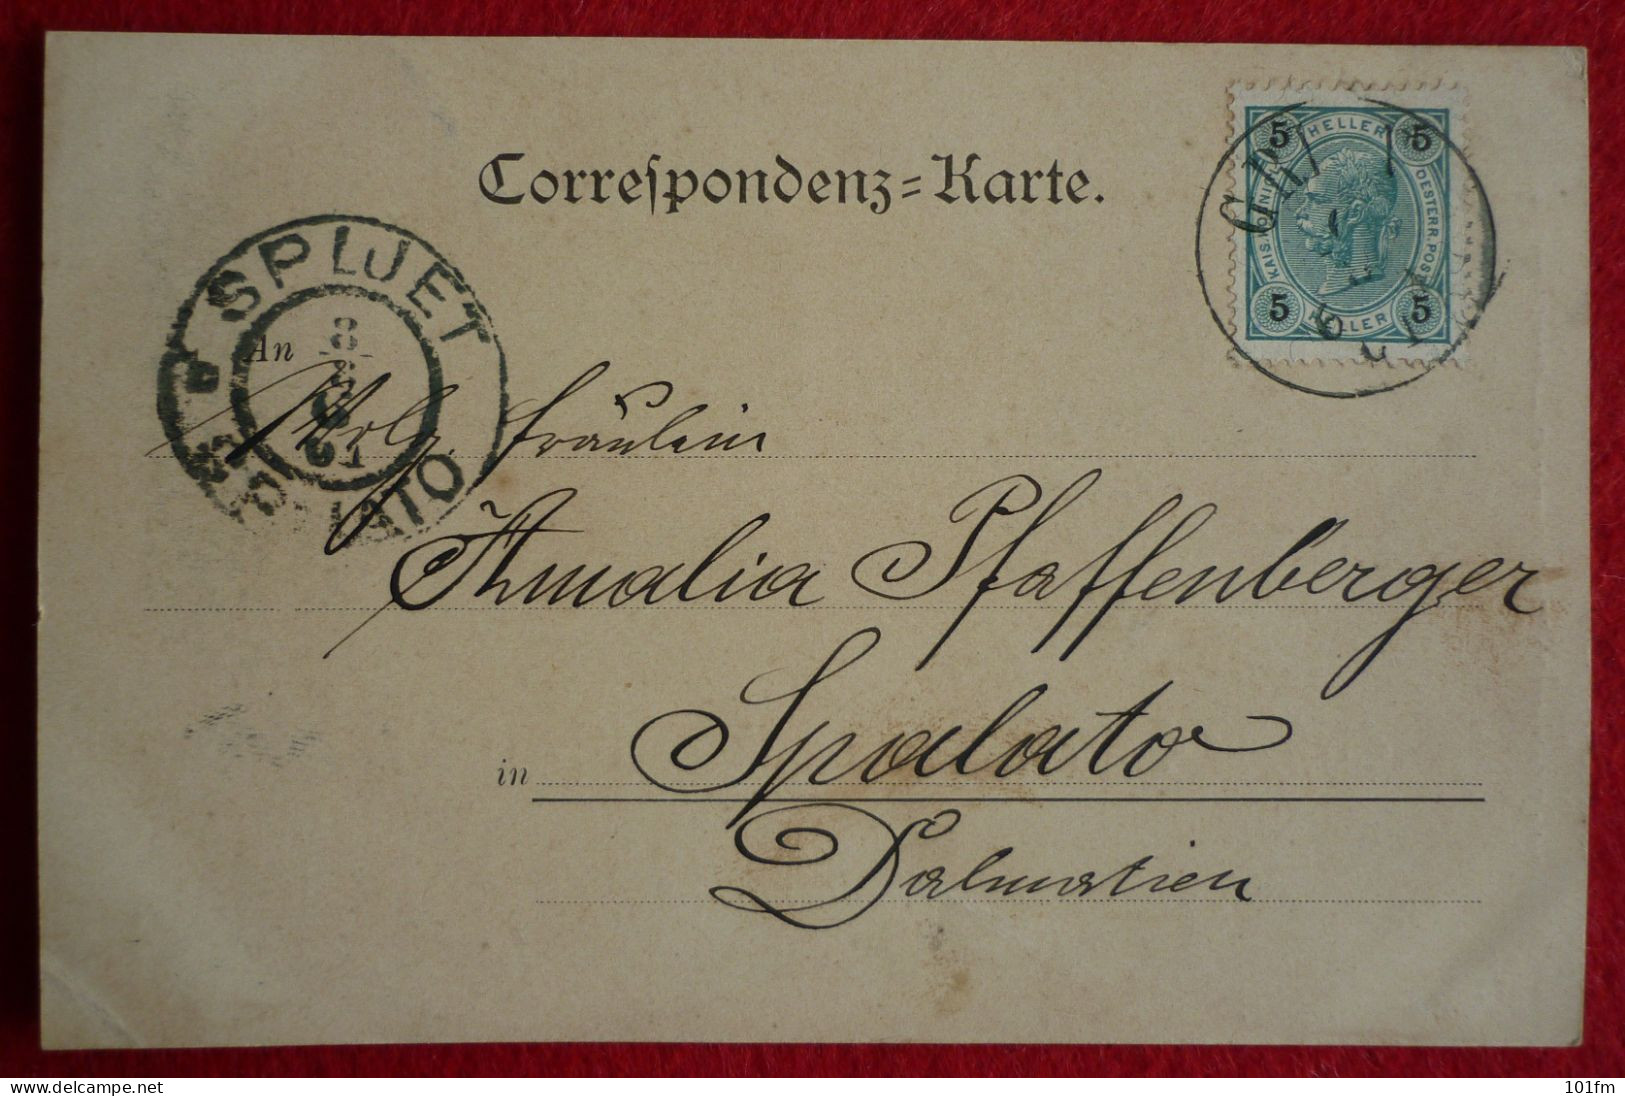 Correſpondenz=Karte.
5 HELLER 5
KAIS. KÖNIGL.
OESTERR. POST
5 HELLER 5
SPLJET
SPALATO
An
Wolg. Fräulein
Amalia Pfaffenberger
in Spalato
Dalmatien
http://www.delcampe.net
101fm